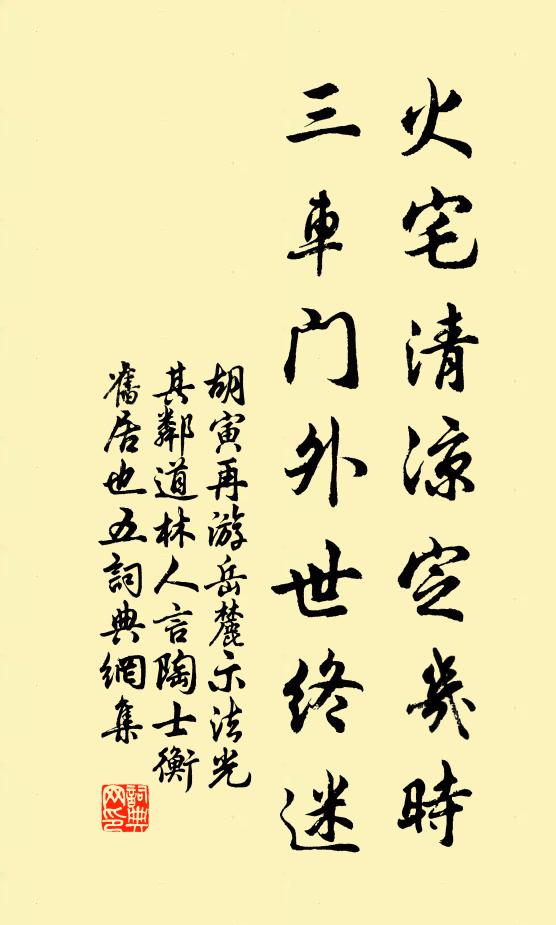 火宅清凉定幾時
三車門外世終迷
胡寅再游岳麓示法光
其鄰道林人言陶士衡
舊居也五詞典網集
詞典網印